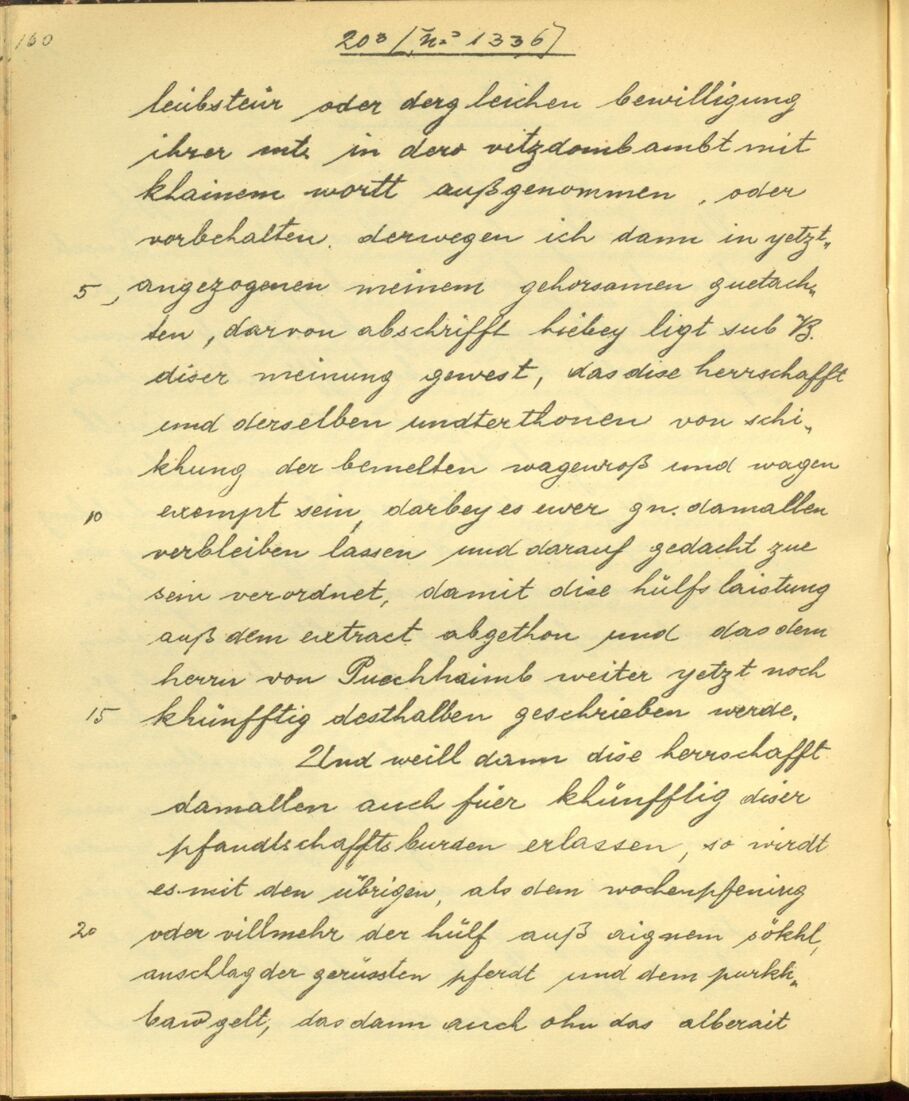 160
203 (No 1336)
leibsteür oder dergleichen bewilligung
ihrer mt. in dero vitzdombambt mit
khainem wortt außgenommen, oder
vorbehalten. derwegen ich dann in yetzt„
5 angezogenen meinem gehorsamen guetach„
ten, darvon abschrifft hiebey ligt sub B.
diser meinung gewest, das dise herrschafft
und derselben undterthonen von schi„
khung der bemelten wagenroß und wagen
10 exempt sein, darbey es ewer gn. damallen
verbleiben lassen und darauf gedacht zue
sein verordnet, damit dise hülfslaistung
auß dem extract abgethon und das dem
herrn von Puechhaimb weiter yetzt noch
15 khünfftig desthalben geschrieben werde.
Und weill dann dise herrschafft
damallen auch füer khünfftig diser
pfandtschafftsburden erlassen, so wirdt
es mit den übrigen, als dem wochenpfening
20 oder villmehr der hülf auß aignem sökhl,
anschlag der gerüssten pferdt und dem purkh„
baw gelt, das dann auch ohn das alberait